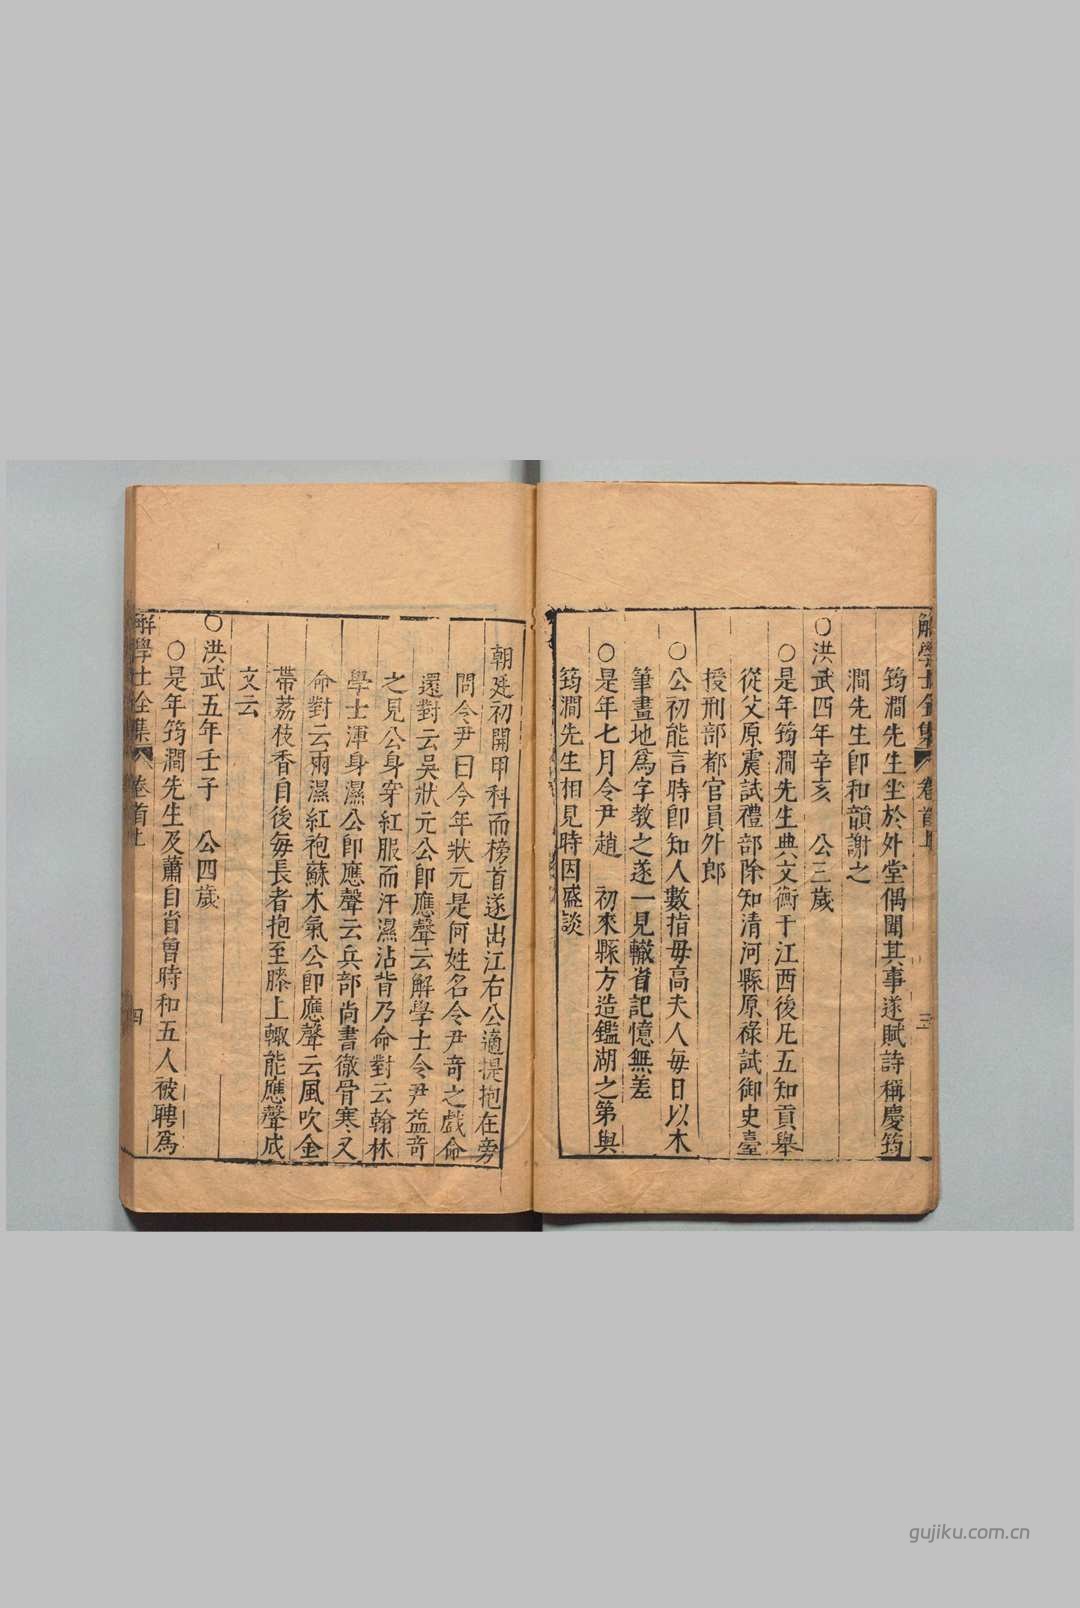 解學士全集 卷首上 三
筠澗先生坐於外堂偶聞其事遂賦詩稱慶筠
澗先生卽和韻謝之
○洪武四年辛亥 公三歲
○是年筠澗先生典文衡于江西後凡五知貢舉
從父原震試禮部除知清河縣原祿試御史臺
授刑部都官員外郎
○公初能言時卽知人數指毋高夫人每日以木
筆畫地爲字教之遂一見轍省記憶無差
○是年七月令尹趙 初來縣方造鑑湖之第與
筠澗先生相見時因盛談
朝廷初開甲科而榜首遂出江右公適提抱在旁
問令尹曰今年狀元是何姓名令尹奇之戲命
還對云吳狀元公卽應聲云解學士令尹益奇
之見公身穿紅服而汗濕沾背乃命對云翰林
學士渾身濕公卽應聲云兵部尚書徹骨寒又
命對云雨濕紅袍蘇木氣公卽應聲云風吹金
帶荔枝香自後每長者抱至膝上輙能應聲成
文云
○洪武五年壬子 公四歲
○是年筠澗先生及蕭自省曾時和五人被聘爲
解學士全集 卷首上 四
gujiku.com.cn